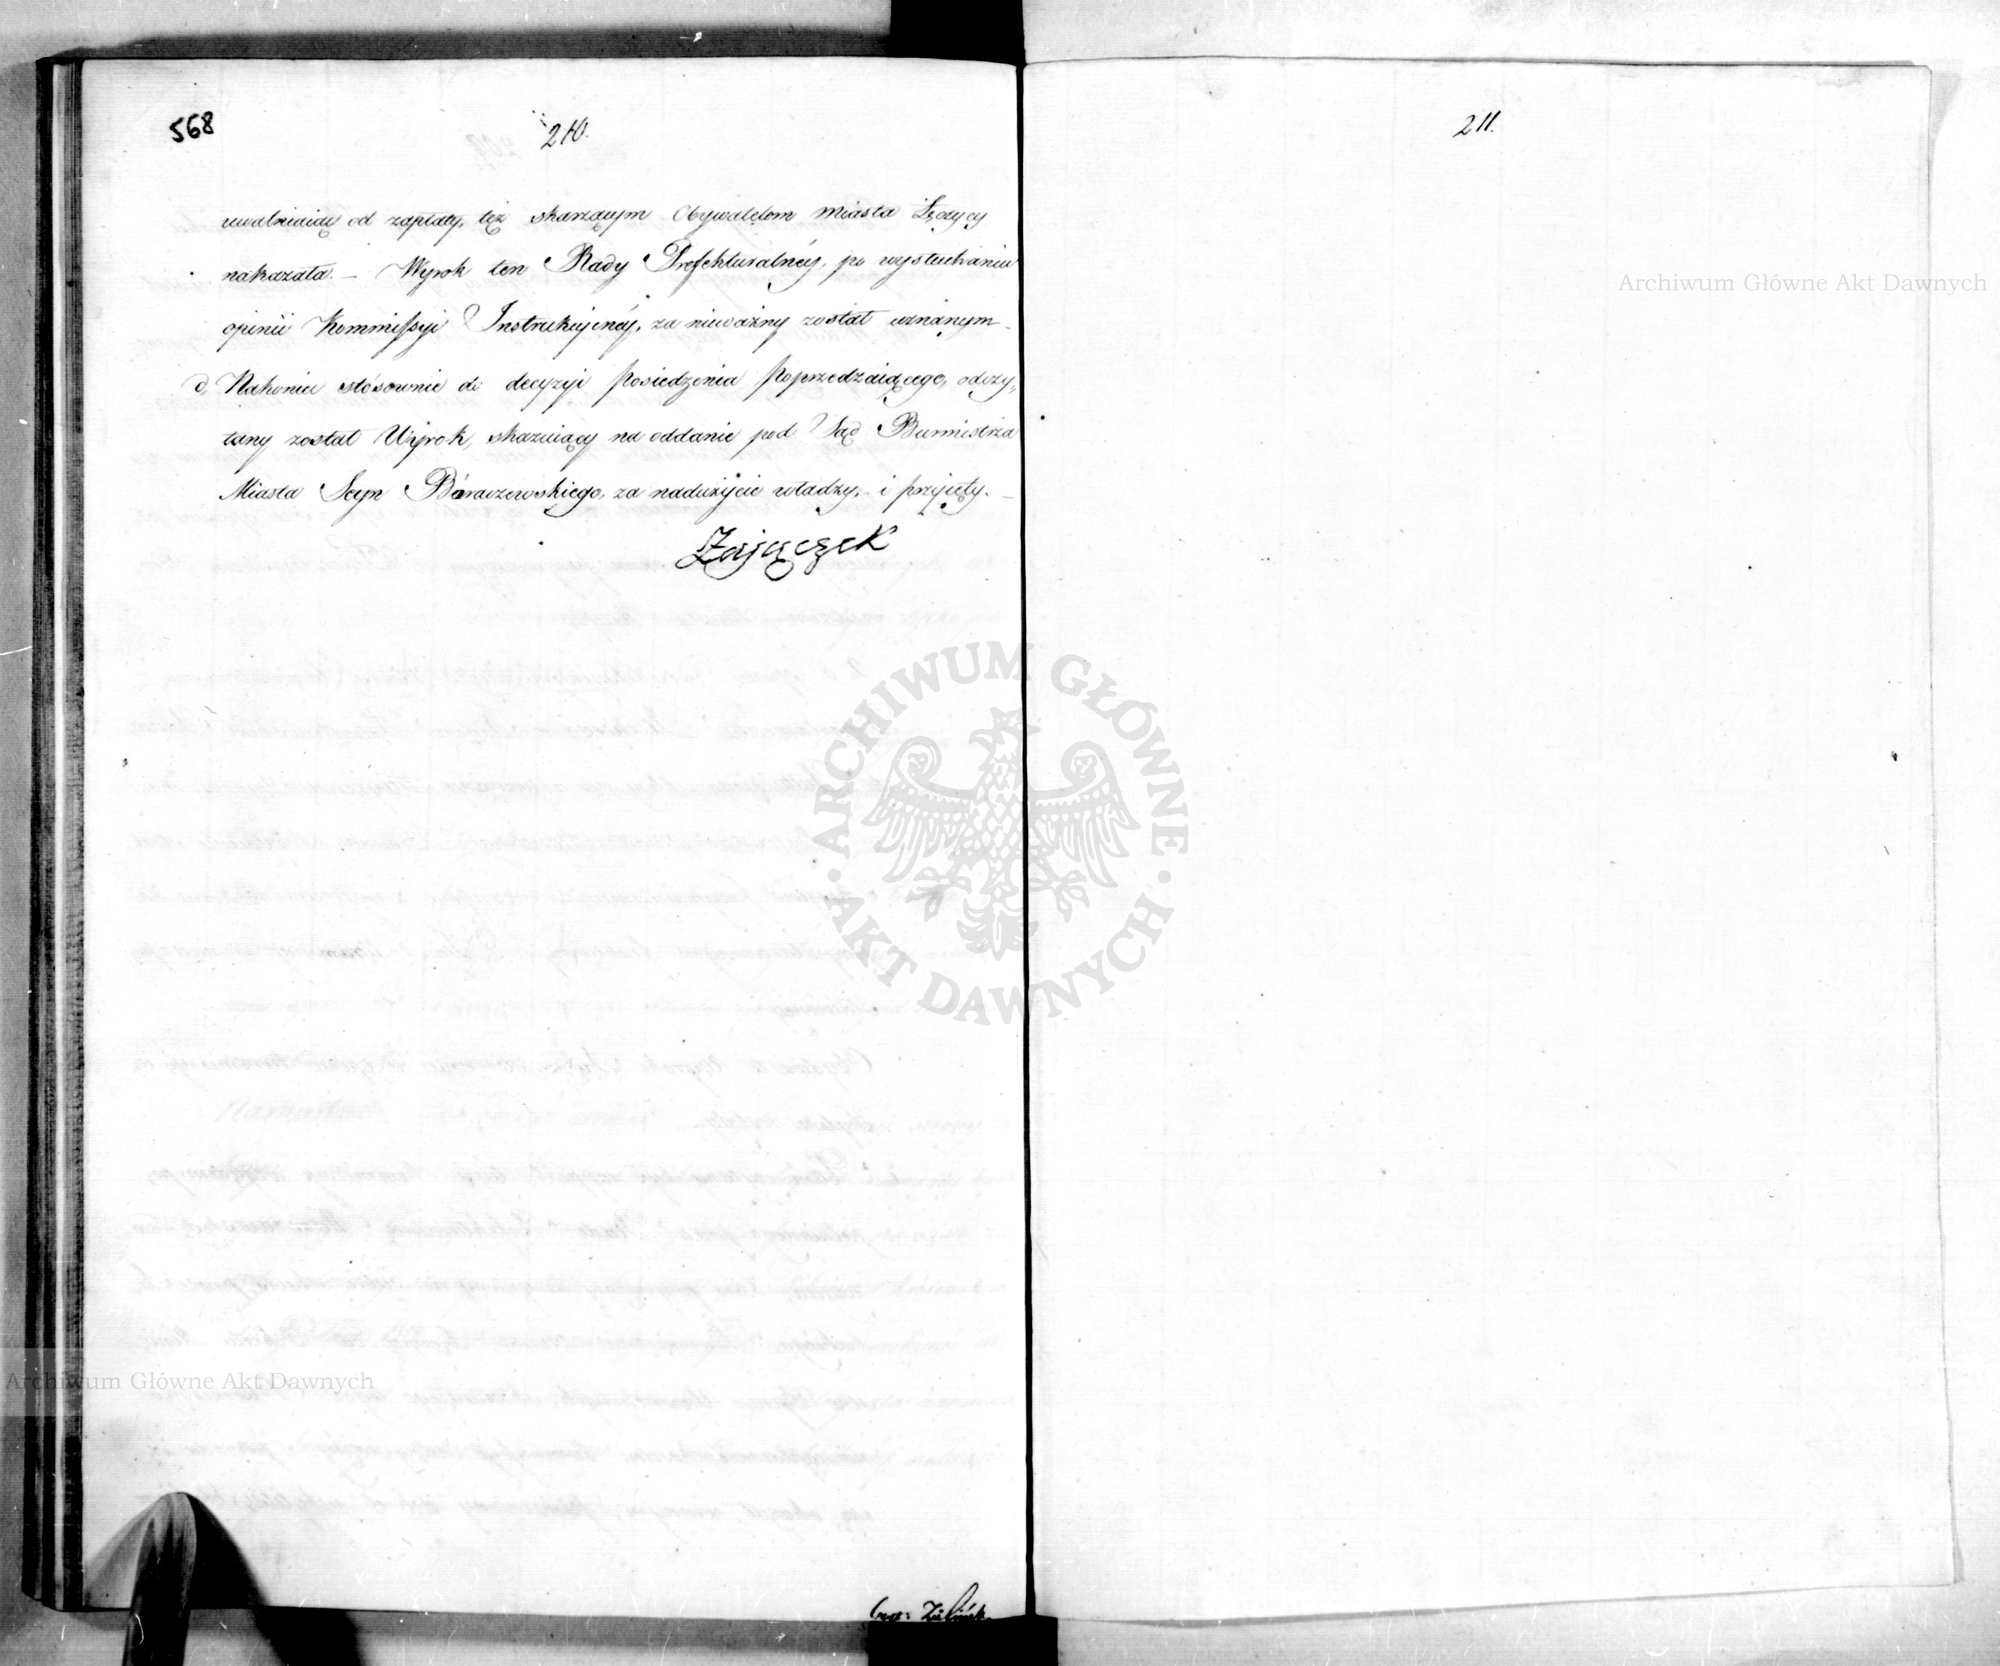 568
210.
uwalniaiąc od zapłaty, też skarżącym Obywatelom Miasta Łęczycy
nakazała. — Wyrok ten Rady Prefekturalnéy, po wysłuchaniu
opinii Kommissyi Instrukcyinéy, za nieważny został uznanym —
d, Nakoniec stósownie do decyzyi Posiedzenia Poprzedzaiącego, odczy-
tany został Wyrok, skazuiący na oddanie pod Sąd Burmistrza
Miasta Seyn Baraczewskiego, za nadużycie władzy, – i przyięty. —
Zajączek
211.
Archiwum Główne Akt Dawnych
ARCHIWUM GŁÓWNE
AKT DAWNYCH
Archiwum Główne Akt Dawnych